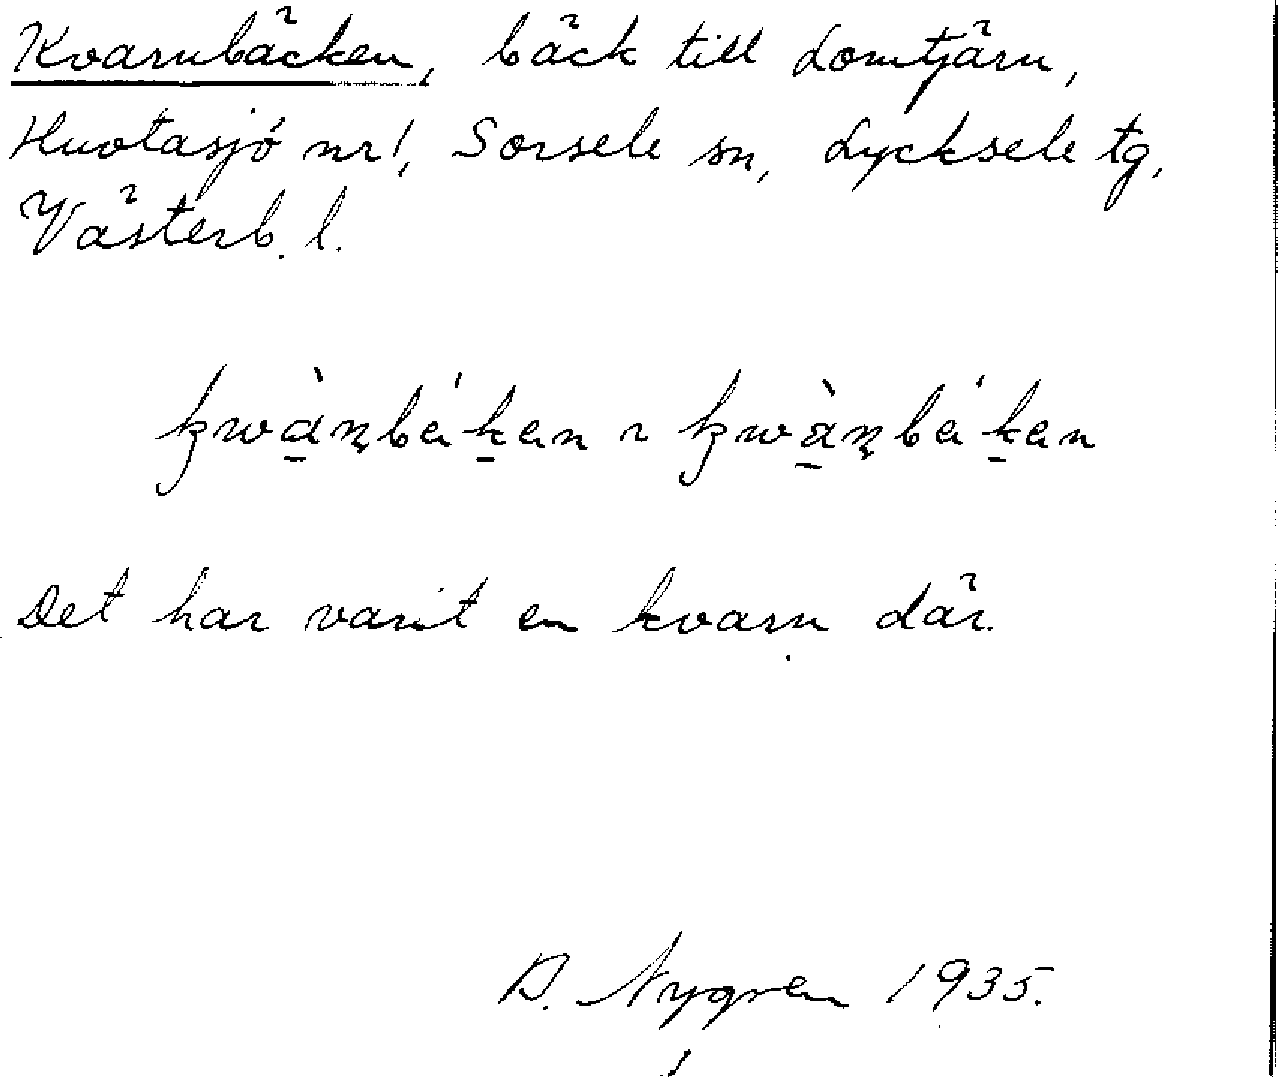 Kvarnbäcken, bäck till Lomtjärn,
Huotasjö nr 1, Sorsele sn, Lycksele tg,
Västerb. l.
Det har varit en kvarn där.
Nygren 1935.